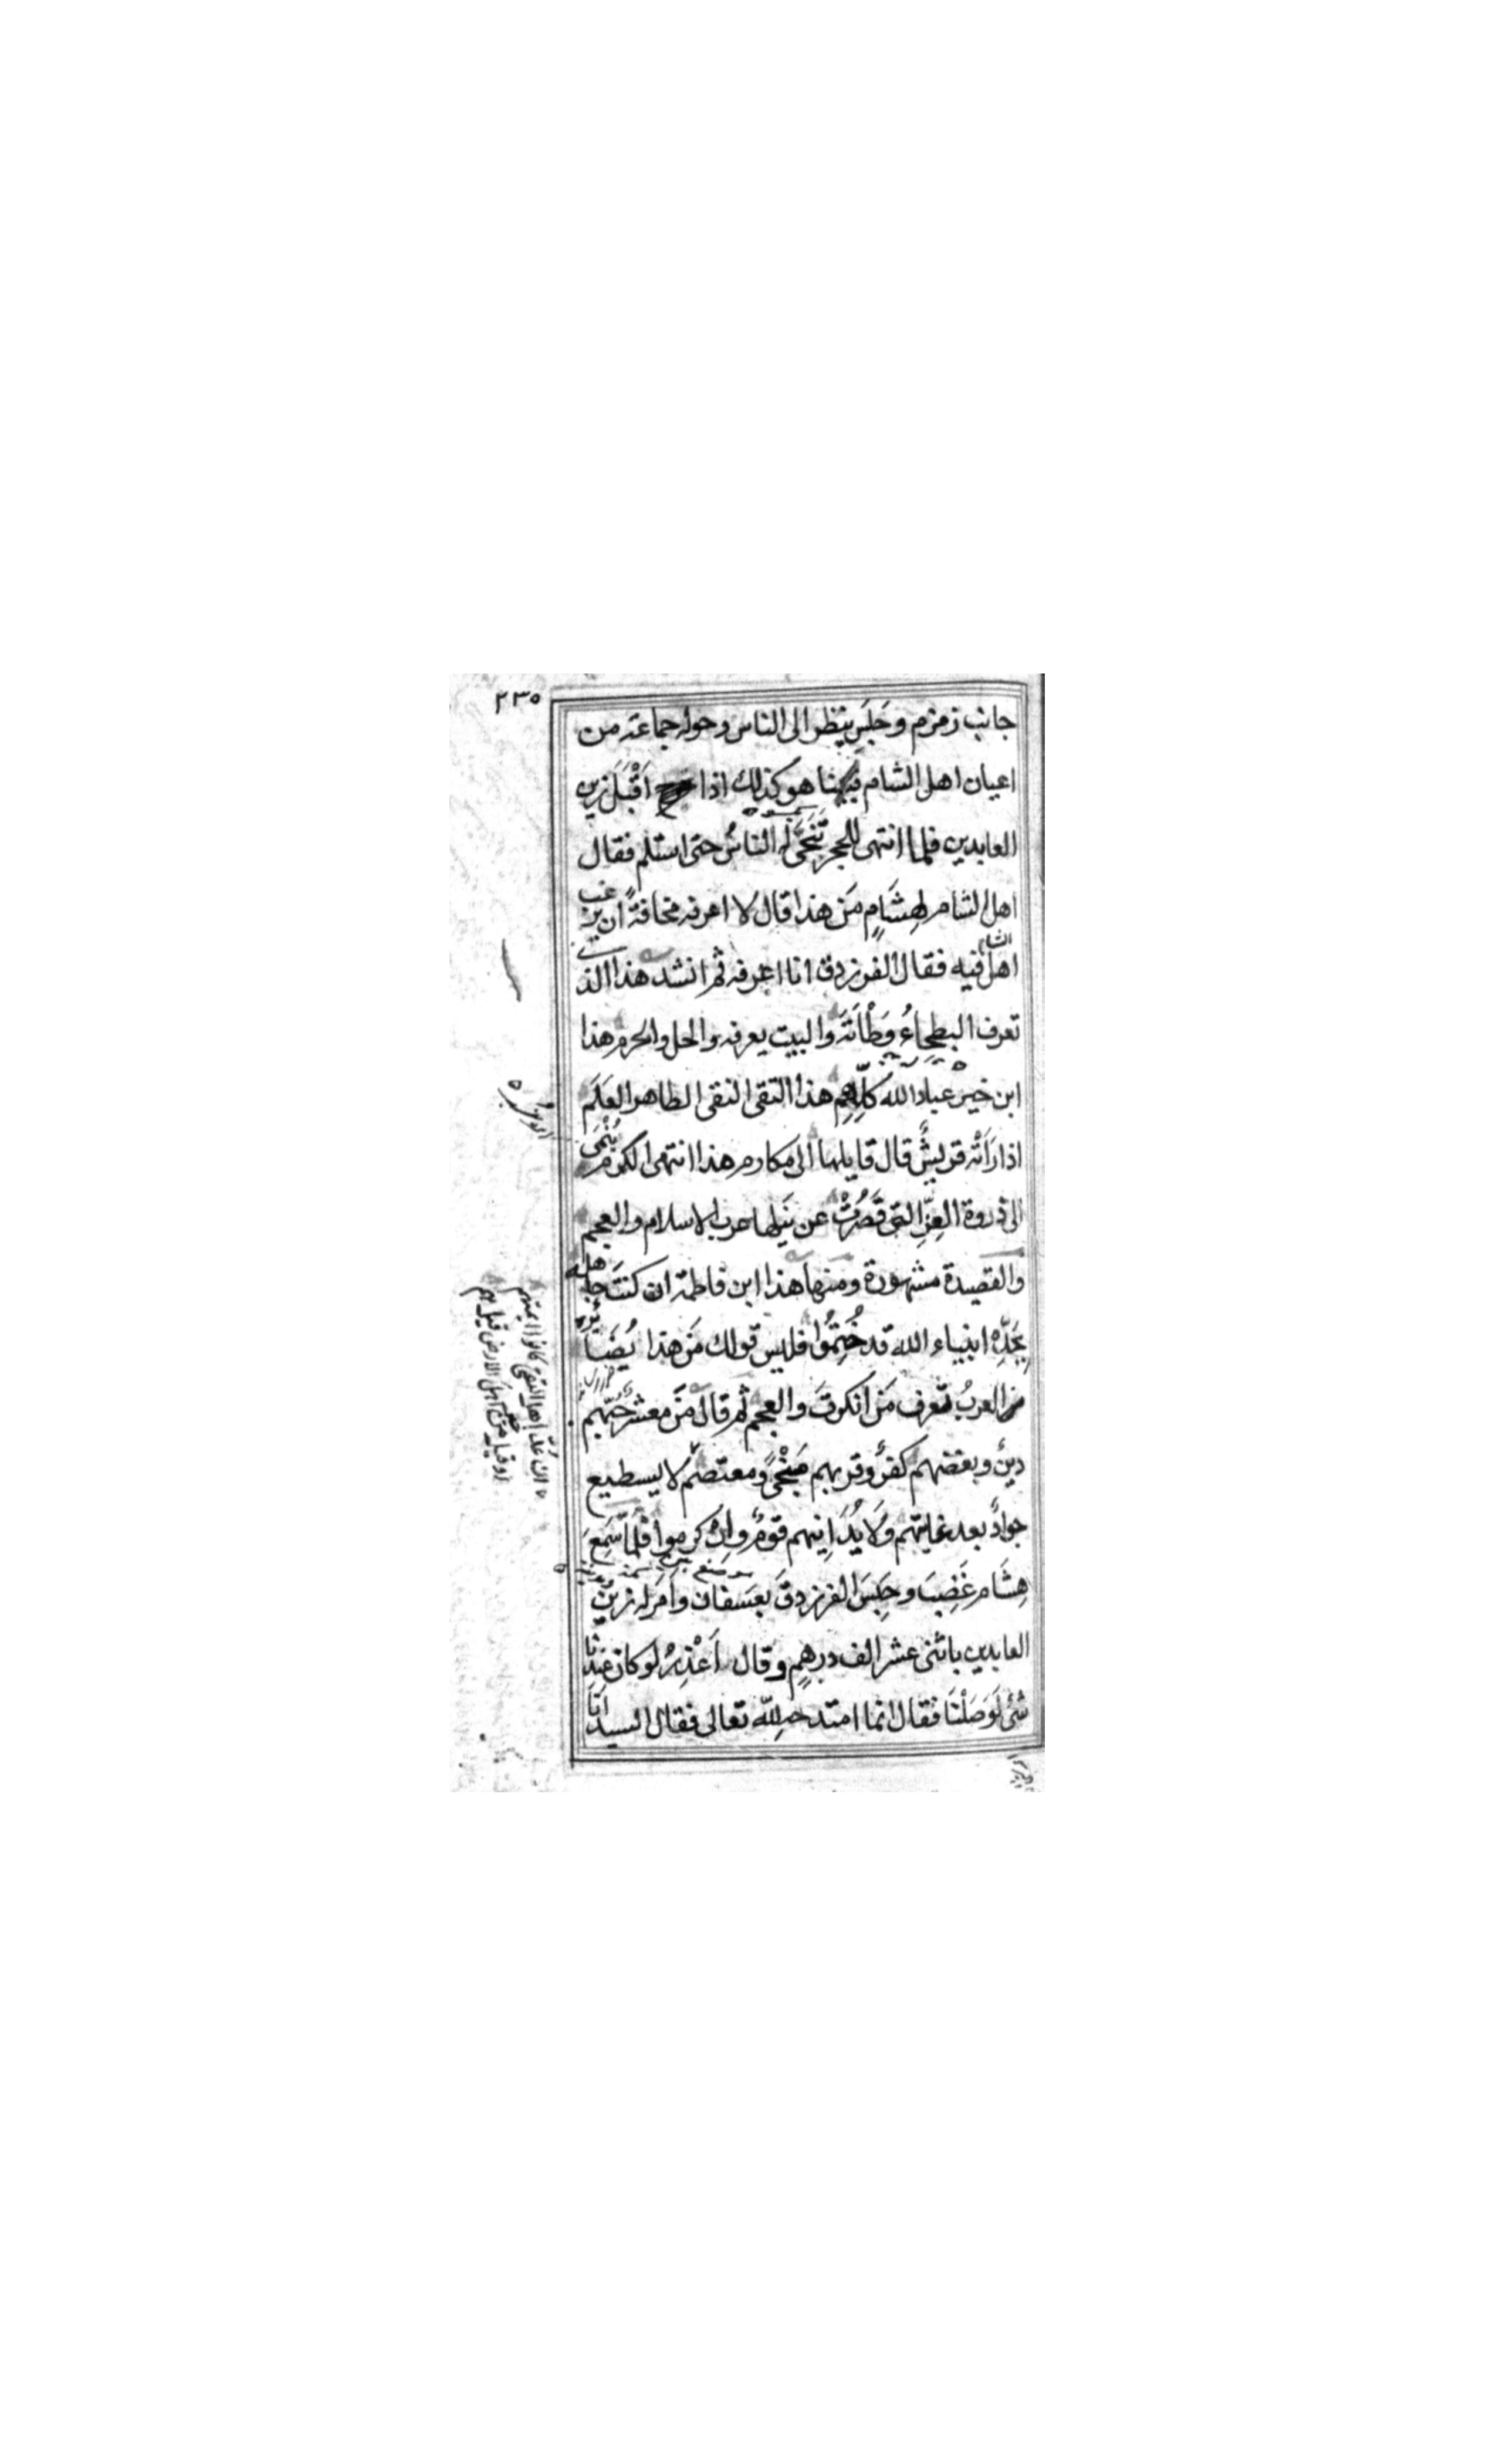 ٢٣٥
جانب زمزم وجَلَسَ ينظر الى الناس وحوله جماعة من
اعيان اهل الشام فبينا هو كذلك اذا اَقْبَلَ زين
العابدين فلما انتهى للحجر تَنَحَّى له الناسُ حتى استلم فقال
اهل الشام لِهِشَامٍ مَن هذا قال لا اعرفه مخافةً ان يرغب
اهل الشام فيه فقال الفرزدق انا اعرفه ثم انشد هذا الذى
تعرف البطحاءُ وَطْأتَه والبيت يعرفه والحل والحرم هذا
ابن خير عباد الله كلِّهِم هذا التقى النقى الطاهر العَلَم
اذا رَاَتْه قريشٌ قال قايلها الى مكارم هذا انتهى الكرم يُنْمَى
الى ذروة العِزِّ التى قَصُرَتْ عن نَيلها عرب الاسلام والعجم
والقصيدة مشهورة ومنها هذا ابن فاطمة ان كنتَ جاهله
بِجَدِّه انبياء الله قد خُتِمُوا فليس قولك مَن هذا بضَائره
العربُ تعرف مَن انكرتَ والعجم ثم قال مَن معشر حُبّهم
دينٌ وبغضهم كفرٌ وقربهم مَنْجىً ومعتصمٌ لا يسطيع
جوادٌ بعد غايتهم وَلَا يُدَانِيهم قومٌ وانْ كرموا فلَمَّا سَمِعَ
هِشَام غَضِبَ وحبَسَ الفرزدقَ بعَسفان واَمَر له زين
العابدين باثنى عشر الف درهمٍ وقال اَعْذِرْ لو كان عندنا
شئ لَوَصَلْنَا فقال انما امتدحه لله تعالى فقال السيد انّا
ان عُدَّ اهل التقى كانوا ائمتهم
او قيل من خير اهل الارض قيل هم